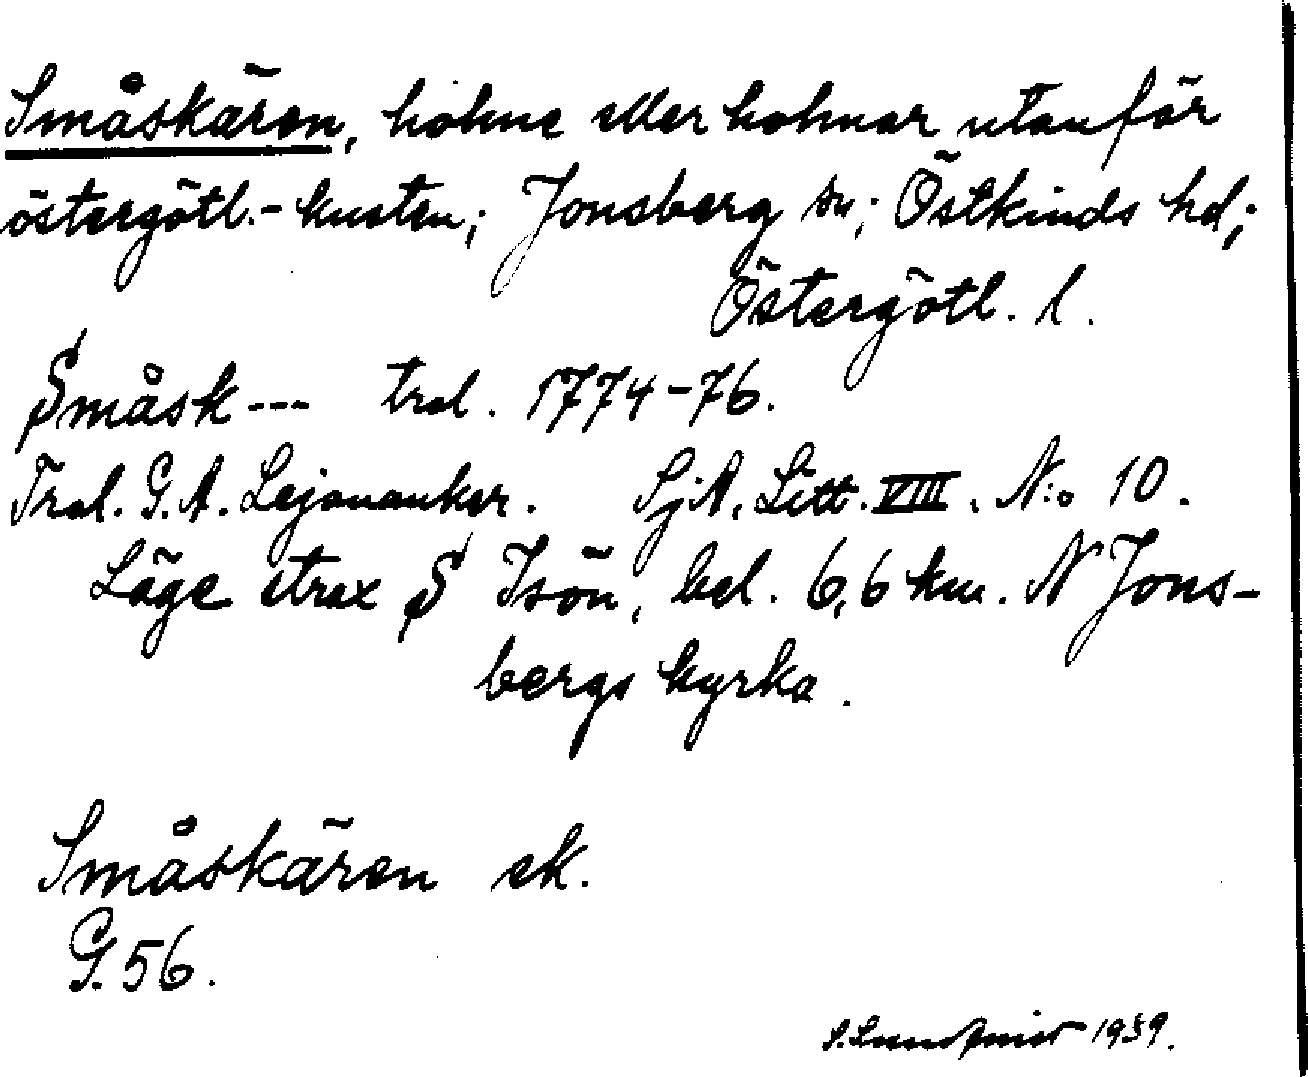 Småskären, holme eller holmar utanför
östergötl.-kusten; Jonsberg sn; Östkinds hd;
Östergötl. l.
Småsk--- trol. 1774-76.
Trol. G. A. Lejonanker. SjA. Litt. VIII. N:o 10.
Läge strax S Isön, bel. 6,6 km. N Jons-
bergs kyrka.
Småskären ek.
G. 56.
S. Lundquist 1939.